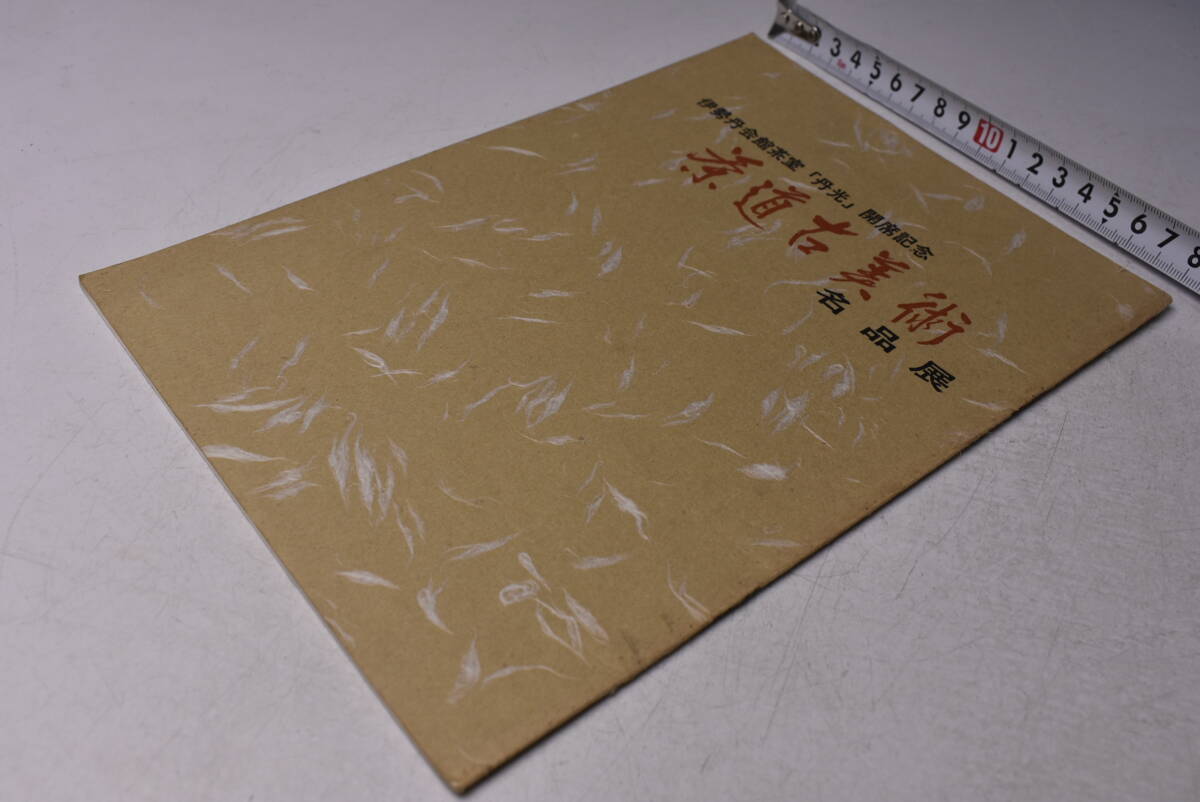 伊勢丹会館茶室「丹光」開席記念
茶道古美術
名品展
2 3 4 5 6 7 8 9 10 1 2 3 4 5 6 7 8